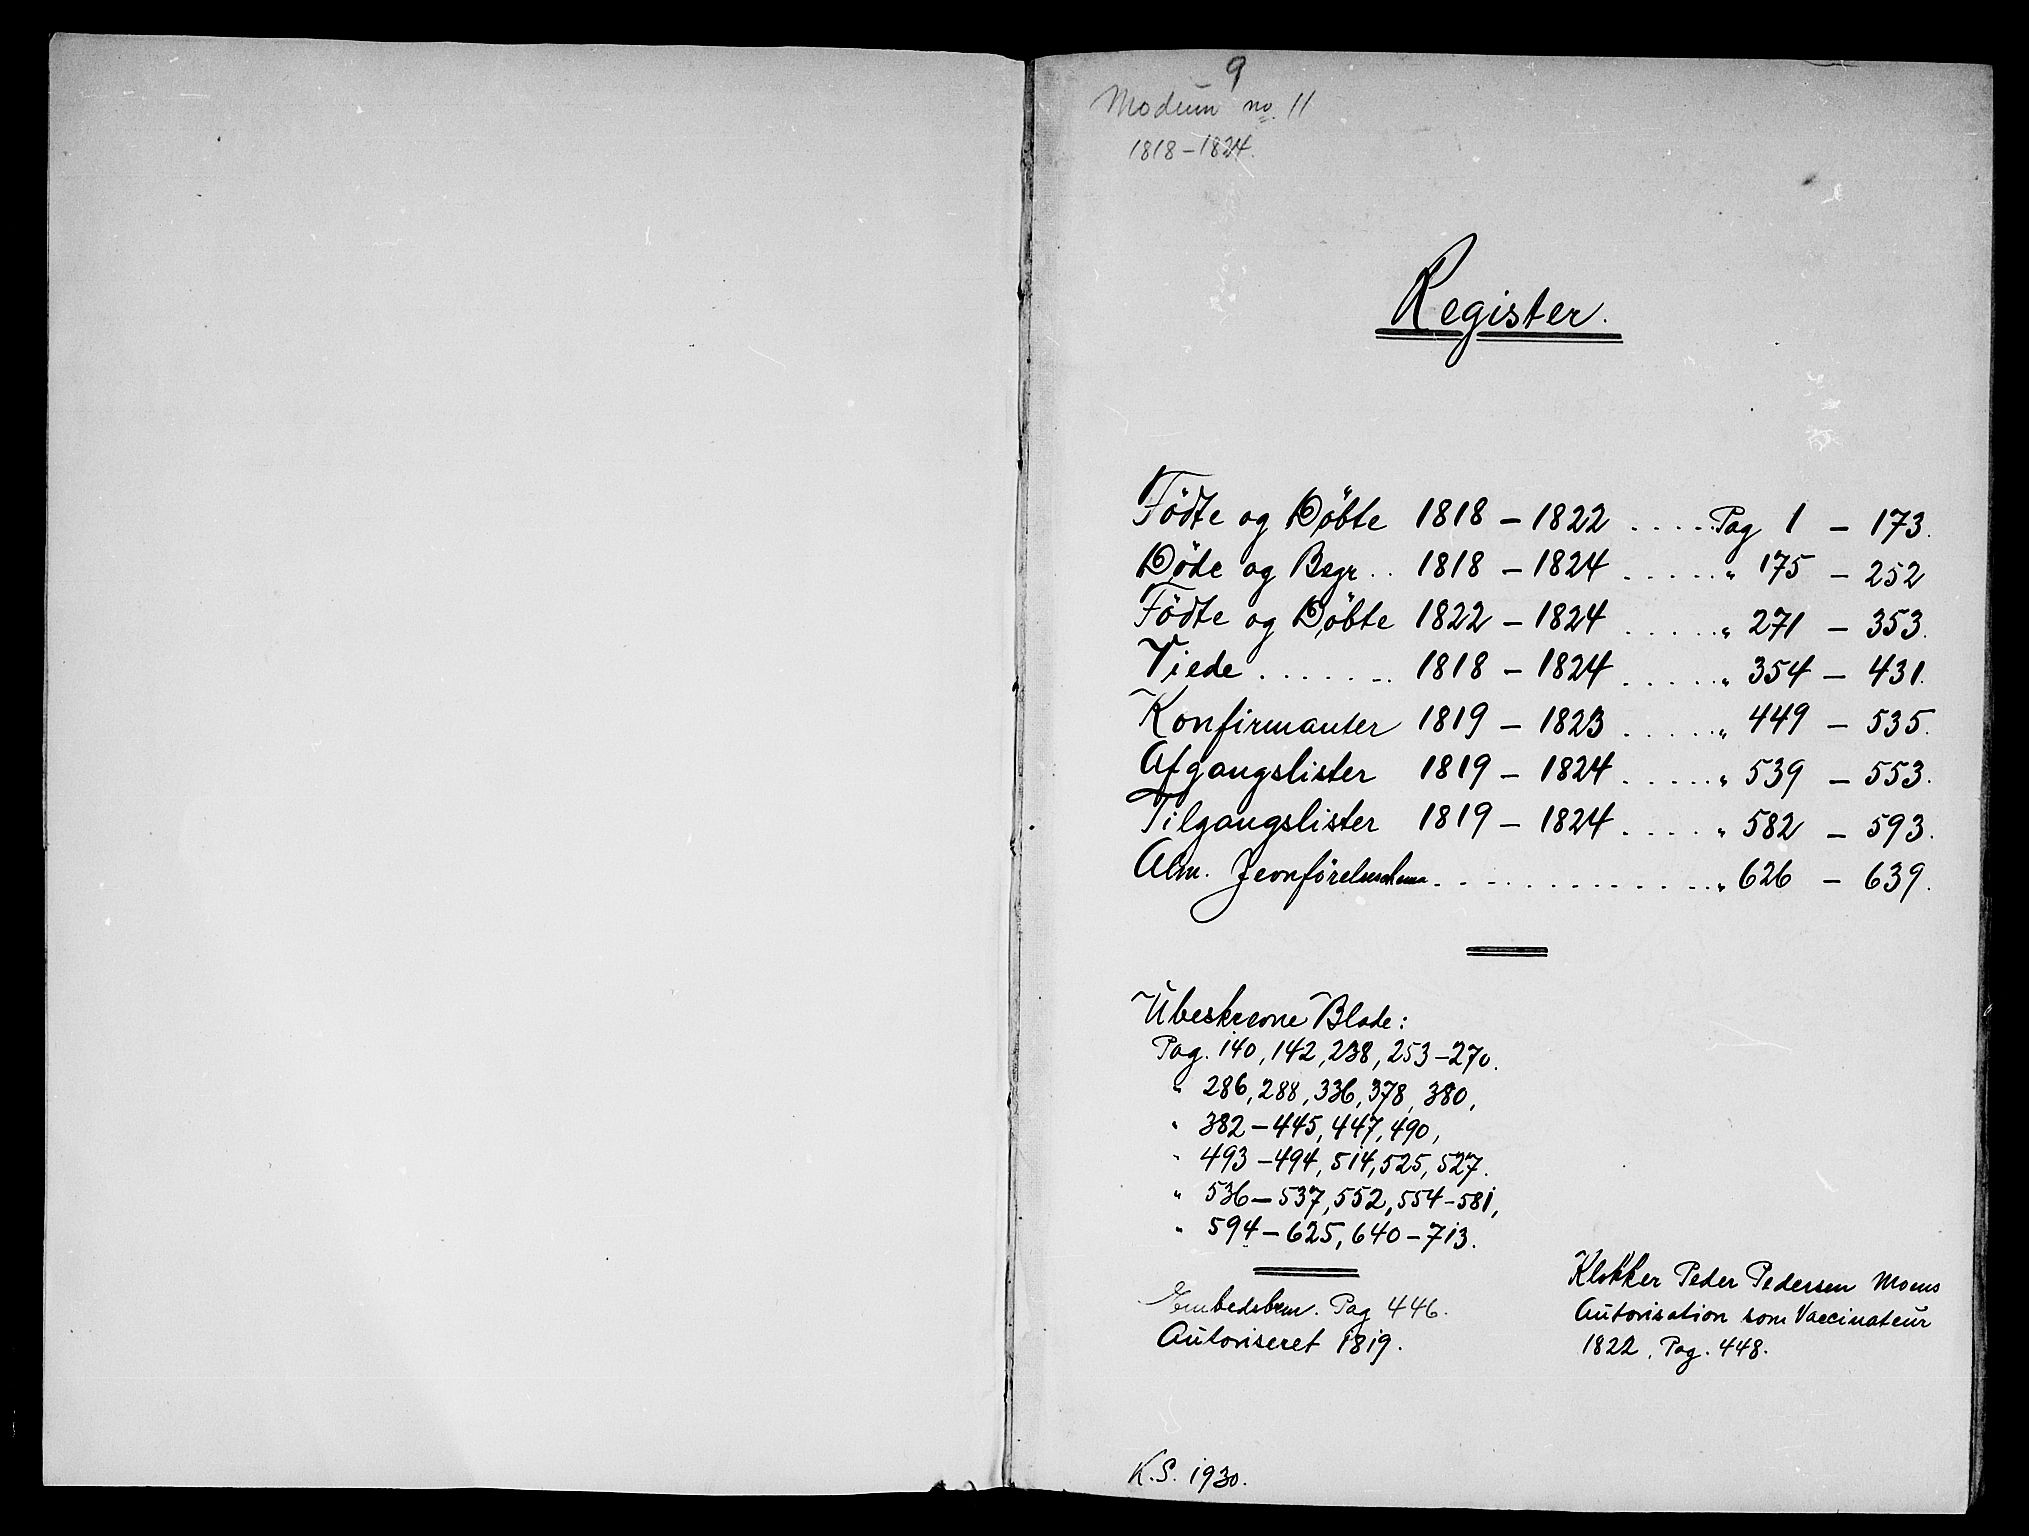 9
Modum no. 11
1818-1824.
Register.
Födte og Döbte 1818 - 1822 ..... Pag 1 - 173.
Döde og Begr .. 1818 - 1824 ..... " 175 - 252
Födte og Döbte 1822 - 1824 ..... " 271 - 353.
Viede ....... 1818 - 1824 ..... " 354 - 431.
Konfirmanter 1819 - 1823 ..... " 449 - 535.
Afgangslister 1819 - 1824 ..... " 539 - 553.
Tilgangslister 1819 - 1824 ..... " 582 - 593.
Alm. ............. " 626 - 639.
Ubeskrevne Blade:
Pag. 140, 142, 238, 253-270.
" 286, 288, 336, 378, 380,
" 382-445, 447, 490,
" 493-494, 514, 525, 527.
" 536-537, 552, 554-581,
" 594-625, 640-713.
Pag 446.
Autoriseret 1819.
Klokker Peder Pedersen Moens
Autorisation som Vaccinateur
1822. Pag. 448.
K.S. 1930.